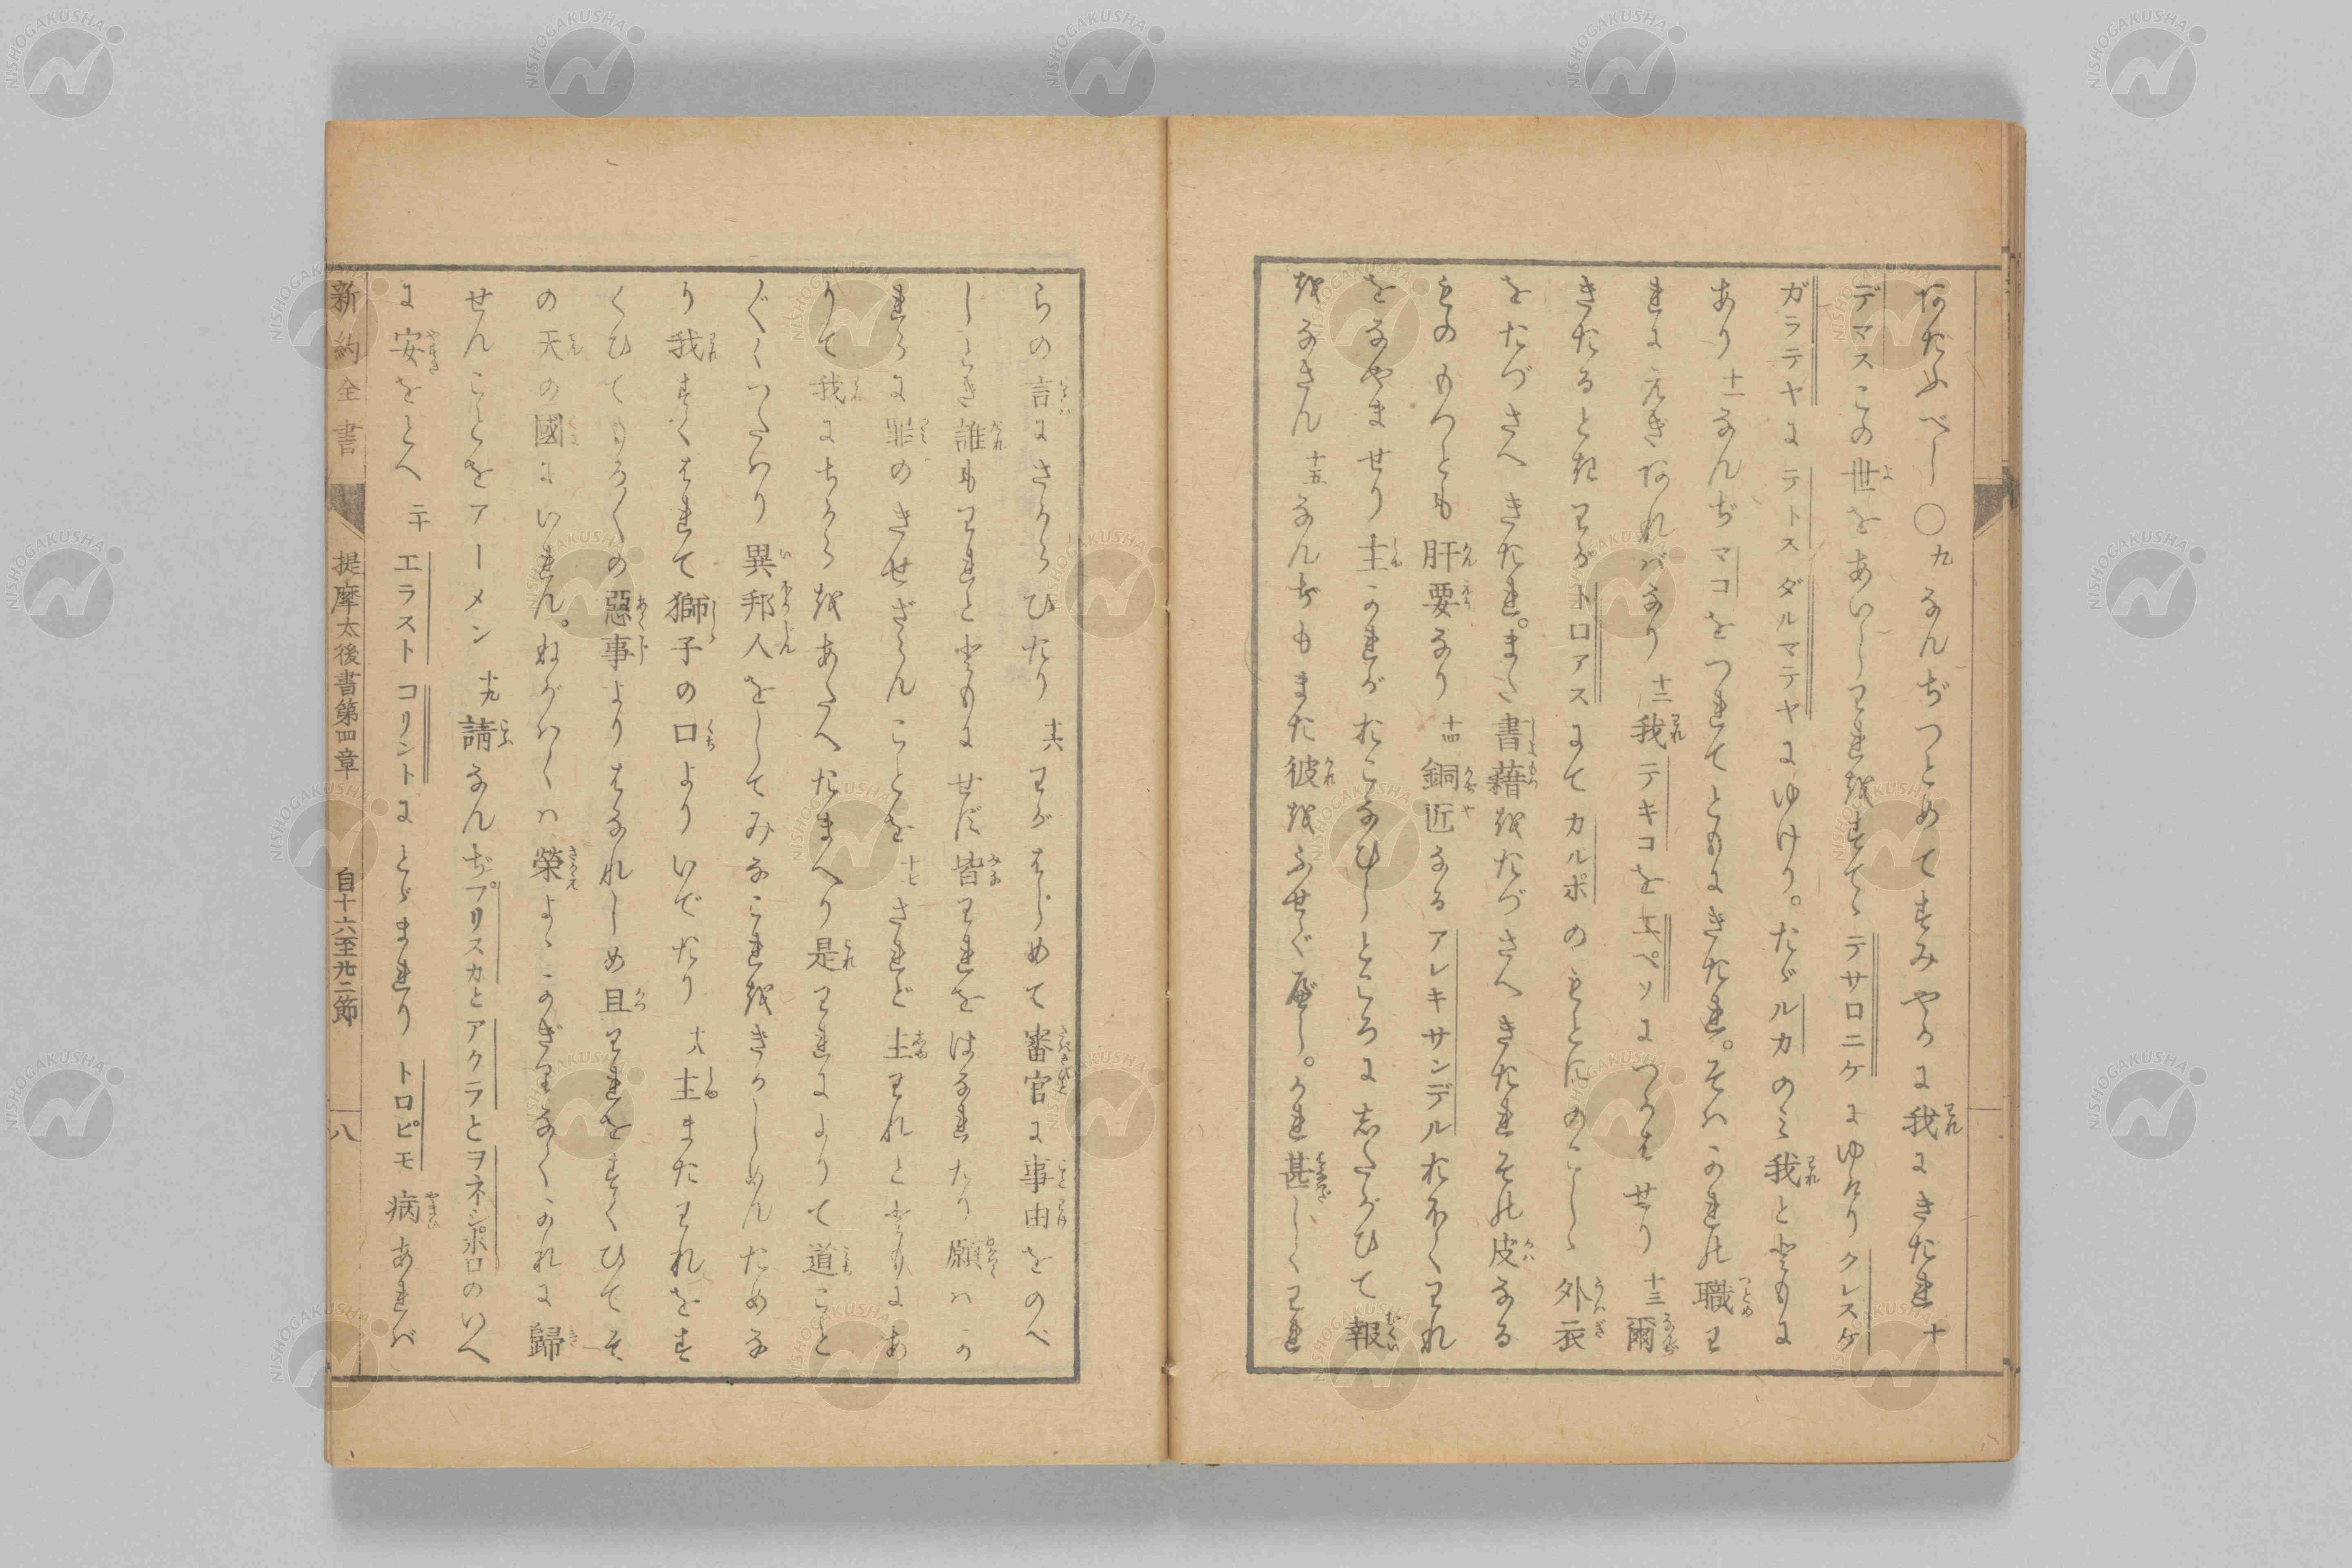 なたふべし〇九なんぢつとめてすみやかに我にきたれ十
デマスこの世をあいしわれをすてゝテサロニケにゆけりクレスケ
ガラテヤにテトスダルマテヤにゆけり。たゞルカのみ我とともに
あり十一なんぢマコをつれてともにきたれ。そハこのれの職わ
れにえきなれバなり十二我テキコをエペソにつかはせり十三爾
きたるときわがトロアスにてカルポのもとにのこしゝ外衣
をたづさへきたれ。また書藉をたづさへきたれその皮なる
ものもつとも肝要なり十四銅匠なるアレキサンデルおほくわれ
をなやませり主かれがおこなひしところに志たがひて報
をなさん十五なんぢもまた彼をふせぐべし。かれ甚しくわれ
らの言にさからひたり十六わがはじめて審官に事由をのべ
しとき誰もわれとともにせず皆われをはなれたり願ハか
れらに罪のきせざらんことを十七されど主われとともにあ
りて我にちからをあたへたまへり是われによりて道こと
ぐくつたハり異邦人をしてみなこれをきかしめんためな
り我すくはれて獅子の口よりいでたり十八主またわれをす
くひてもろ〱の惡事よりはなれしめ且われをすくひてそ
の天の國にいれん。ねがハくハ榮よゝかぎりなくかれに歸
せんことをアーメン十九請なんぢプリスカとアクラとヲネシポロのいへ
に安をとへ二十エラストコリントにとゞまれりトロピモ病あれバ
新約全書 提摩太後書第四章 自十六至廿二節 八